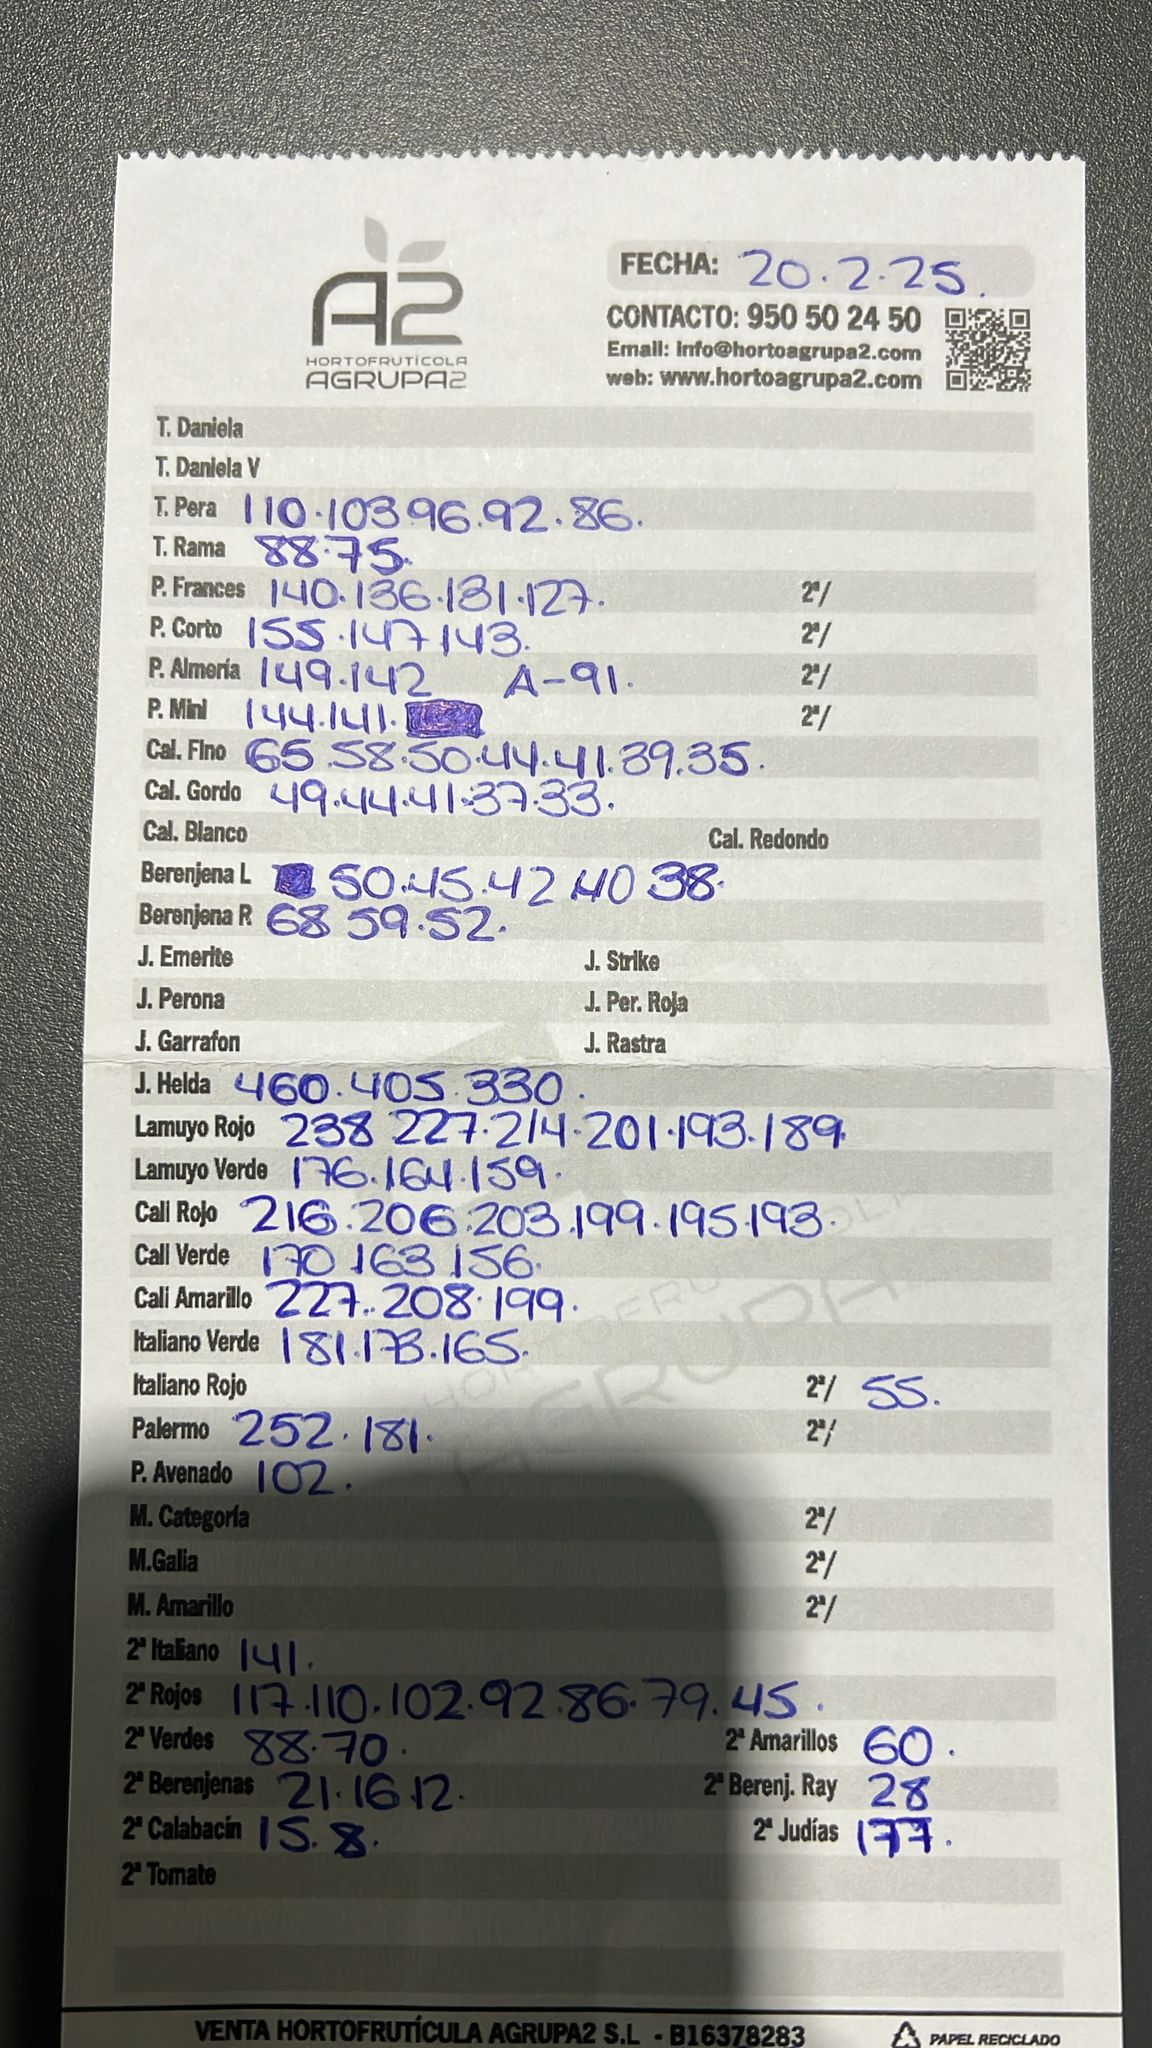 A2
HORTOFRUTÍCOLA
AGRUPA2
FECHA: 20.2.25.
CONTACTO: 950 50 24 50
Email: info@hortoagrupa2.com
web: www.hortoagrupa2.com
T. Daniela
T. Daniela V
T. Pera 110.103 96.92.86.
T. Rama 88.75.
P. Frances 140.136.131.127. 2ª/
P. Corto 155.147 143. 2ª/
P. Almería 149.142 A-91. 2ª/
P. Mini 144.141. 2ª/
Cal. Fino 65.58.50.44.41.39.35.
Cal. Gordo 49.44.41.37.33.
Cal. Blanco Cal. Redondo
Berenjena L 50.45.42 40 38.
Berenjena R 68 59.52.
J. Emerite J. Strike
J. Perona J. Per. Roja
J. Garrafon J. Rastra
J. Helda 460.405.330.
Lamuyo Rojo 238 227.214.201.193.189
Lamuyo Verde 176.164.159.
Cali Rojo 216.206.203.199.195.193.
Cali Verde 170.163.156.
Cali Amarillo 227.208.199.
Italiano Verde 181.173.165.
Italiano Rojo 2ª/ 55.
Palermo 252.181. 2ª/
P. Avenado 102.
M. Categoría 2ª/
M.Galia 2ª/
M. Amarillo 2ª/
2ª Italiano 141.
2ª Rojos 117.110.102.92.86.79.45.
2ª Verdes 88.70. 2ª Amarillos 60.
2ª Berenjenas 21.16.12. 2ª Berenj. Ray 28
2ª Calabacín 15.8. 2ª Judías 177.
2ª Tomate
VENTA HORTOFRUTÍCULA AGRUPA2 S.L - B16378283 PAPEL RECICLADO